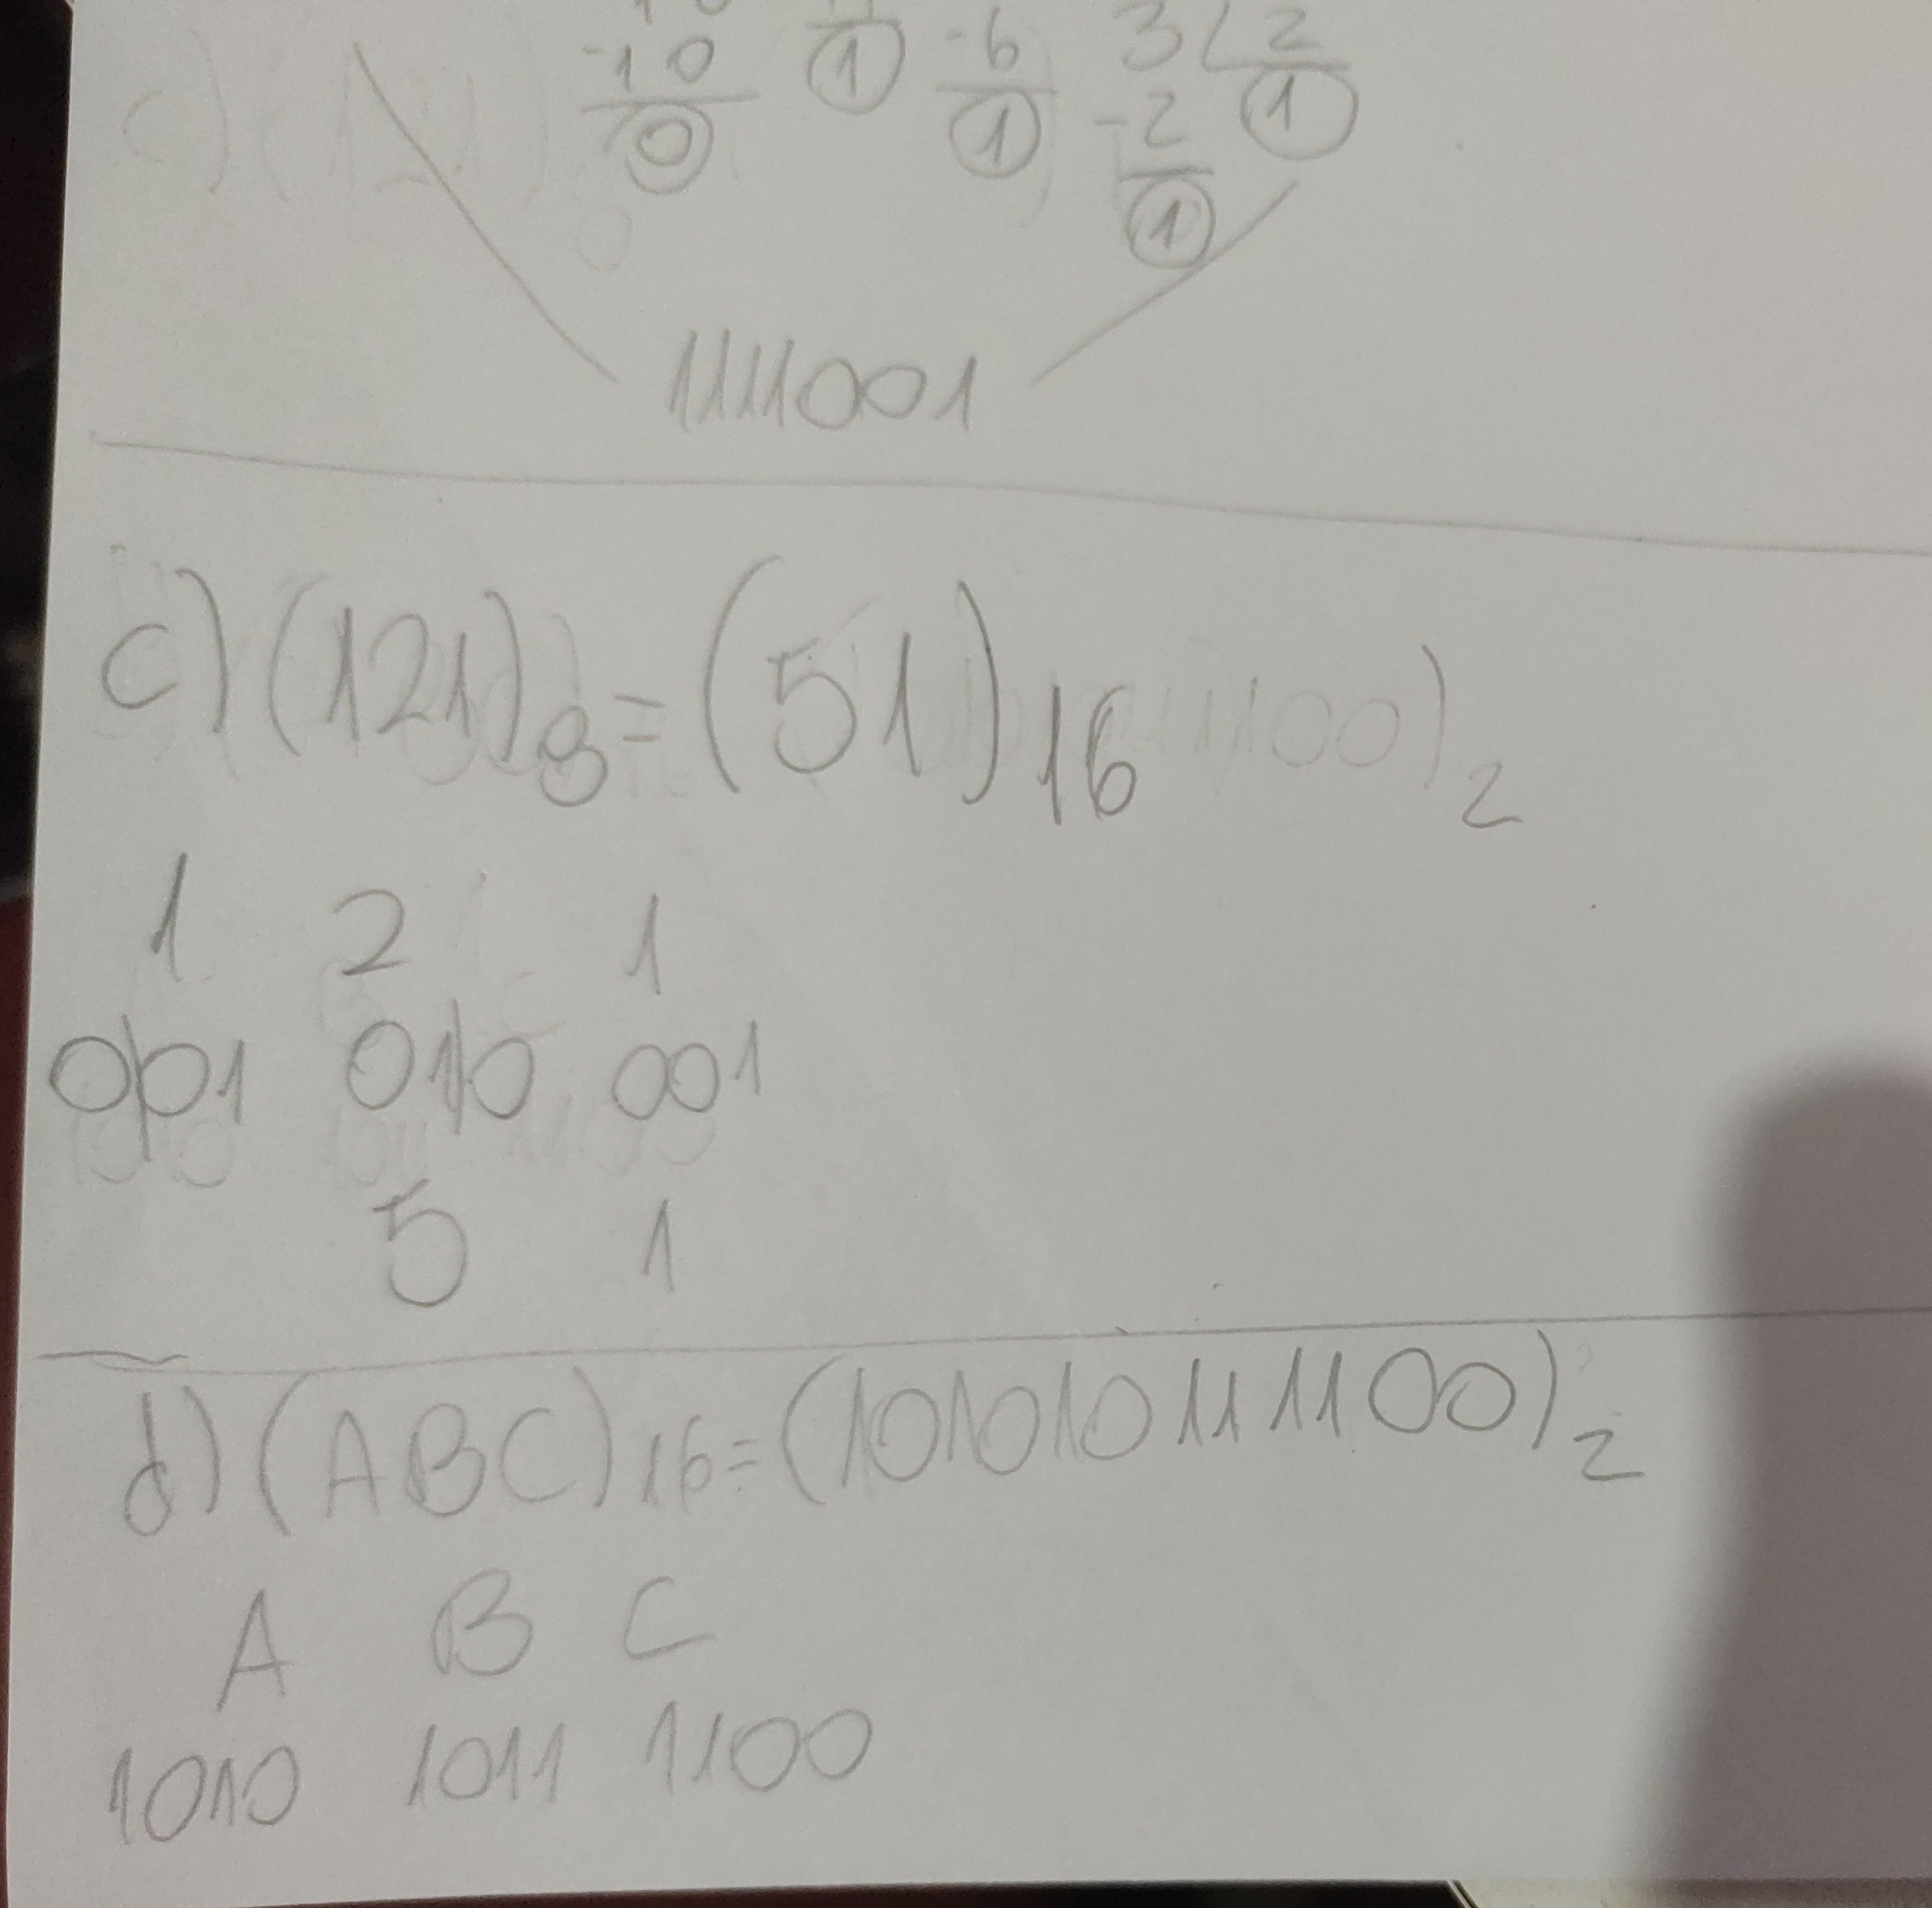 -10 1 -6 3 2
0 1 -2 1
1
1111001
c) (121)8 = (51)16 1100)2
1 2 1
001 010 001
5 1
d) (ABC)16 = (101010111100)2
A B C
1010 1011 1100